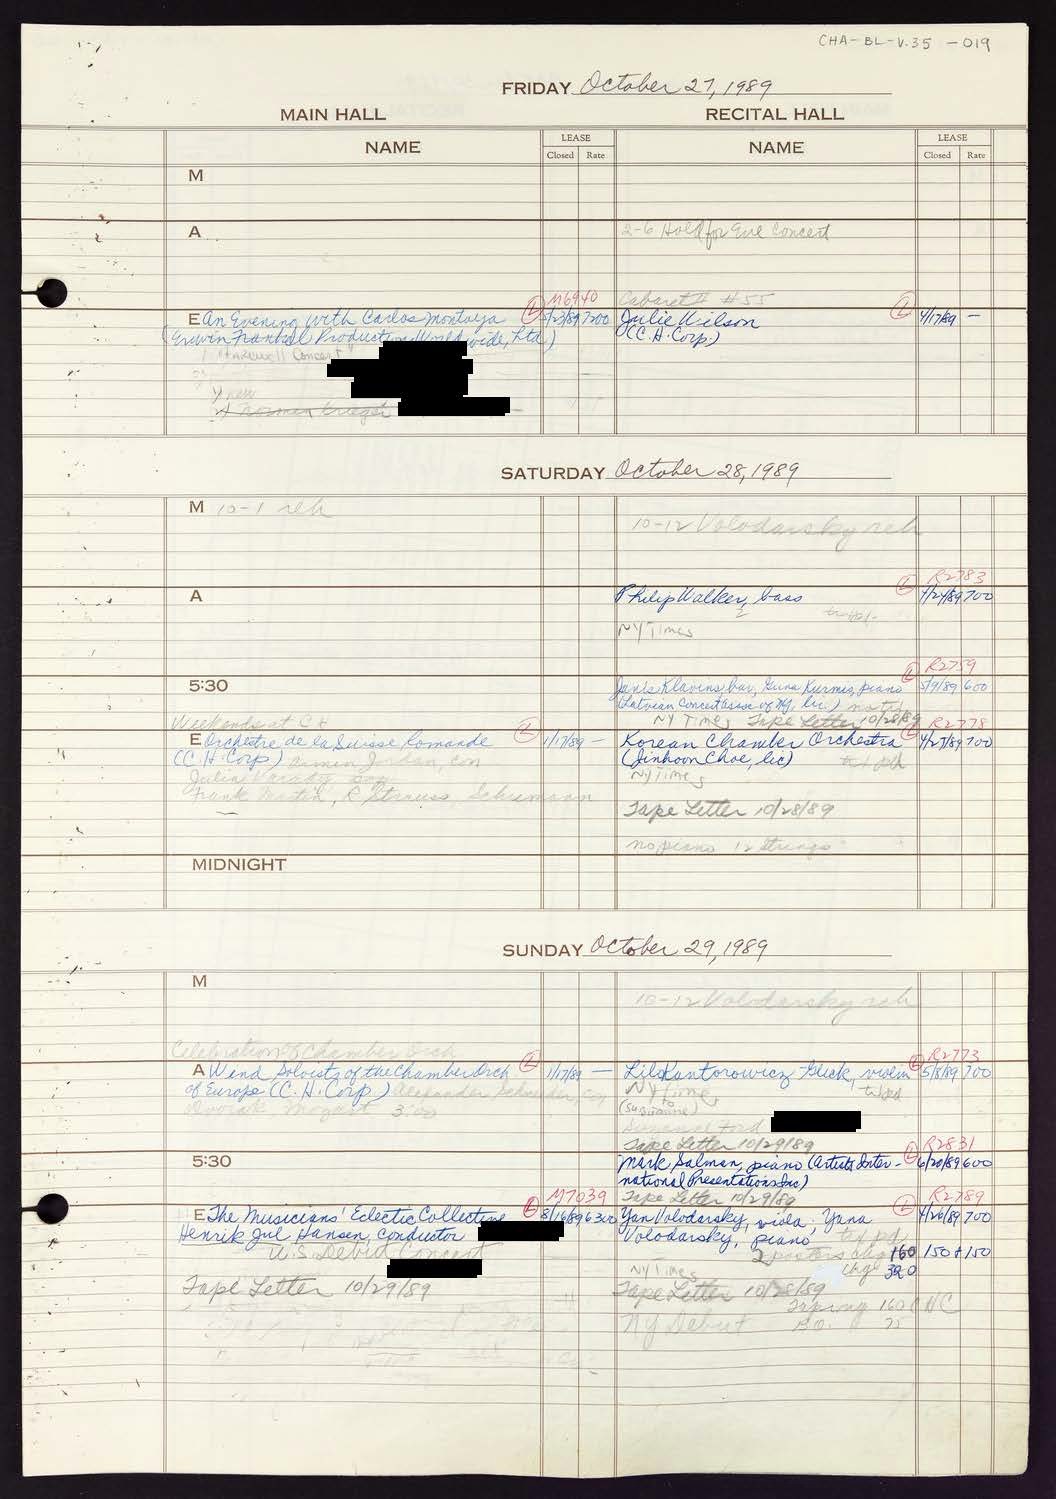 CHA-BL-V.35 -019
FRIDAY October 27, 1989
MAIN HALL
RECITAL HALL
NAME
LEASE
Closed Rate
NAME
LEASE
Closed Rate
M
A
2-6 Hold for Eve Concert
M6940
Cabaret # #55
E An Evening with Carlos Montoya L 5/23/89 7200
(Erwin Frankel Productions Worldwide, Ltd)
"Farewell Concert"
new
Norman Krieger
Julie Wilson L 4/17/89 —
(C.H. Corp.)
SATURDAY October 28, 1989
M 10-1 reh
10-12 Volodarsky reh
R2783
A
Philip Walker, bass L 4/24/89 700
NY Times
R2759
5:30
Janis Klavins bar, Guna Kurmis, piano L 5/9/89 600
(Latvian Concert Assoc of NY, Inc.)
NY Times Tape Letter 10/28/89
Weekends at CH
R2778
E Orchestre de la Suisse Romande L 1/17/89 —
(C.H. Corp) Armin Jordan, con
Julia Varady sop
Frank Martin, R Strauss, Schumann
Korean Chamber Orchestra L 4/25/89 700
(Jinhoon Choe, lic)
NY Times
Tape Letter 10/28/89
no piano 12 strings
MIDNIGHT
SUNDAY October 29, 1989
M
10-12 Volodarsky reh
Celebration of Chamber Orch
R2773
A Wind Soloists of the Chamber Orch L 1/17/89 —
of Europe (C.H. Corp) Alexander Schneider, con
Dvorak, Mozart 3:00
Lila Kantorowicz-Glick, violin L 5/8/89 700
NY Times
(to Susanne)
Suzanne Ford
Tape Letter 10/29/89
R2831
5:30
Mark Salman, piano (Artists Inter- L 6/20/89 600
national Presentations Inc)
Tape Letter 10/29/89
M7039
R2789
E The Musicians' Eclectic Collective L 8/16/89 6300
Henrik Jul Hansen, conductor
U.S. Debut Concert
Tape Letter 10/29/89
Yan Volodarsky, viola; Yana L 4/26/89 700
Volodarsky, piano
2 posters chg 160 150+150
NY Times chg 320
Tape Letter 10/28/89
Taping 160 C NC
NY Debut B.O. 75